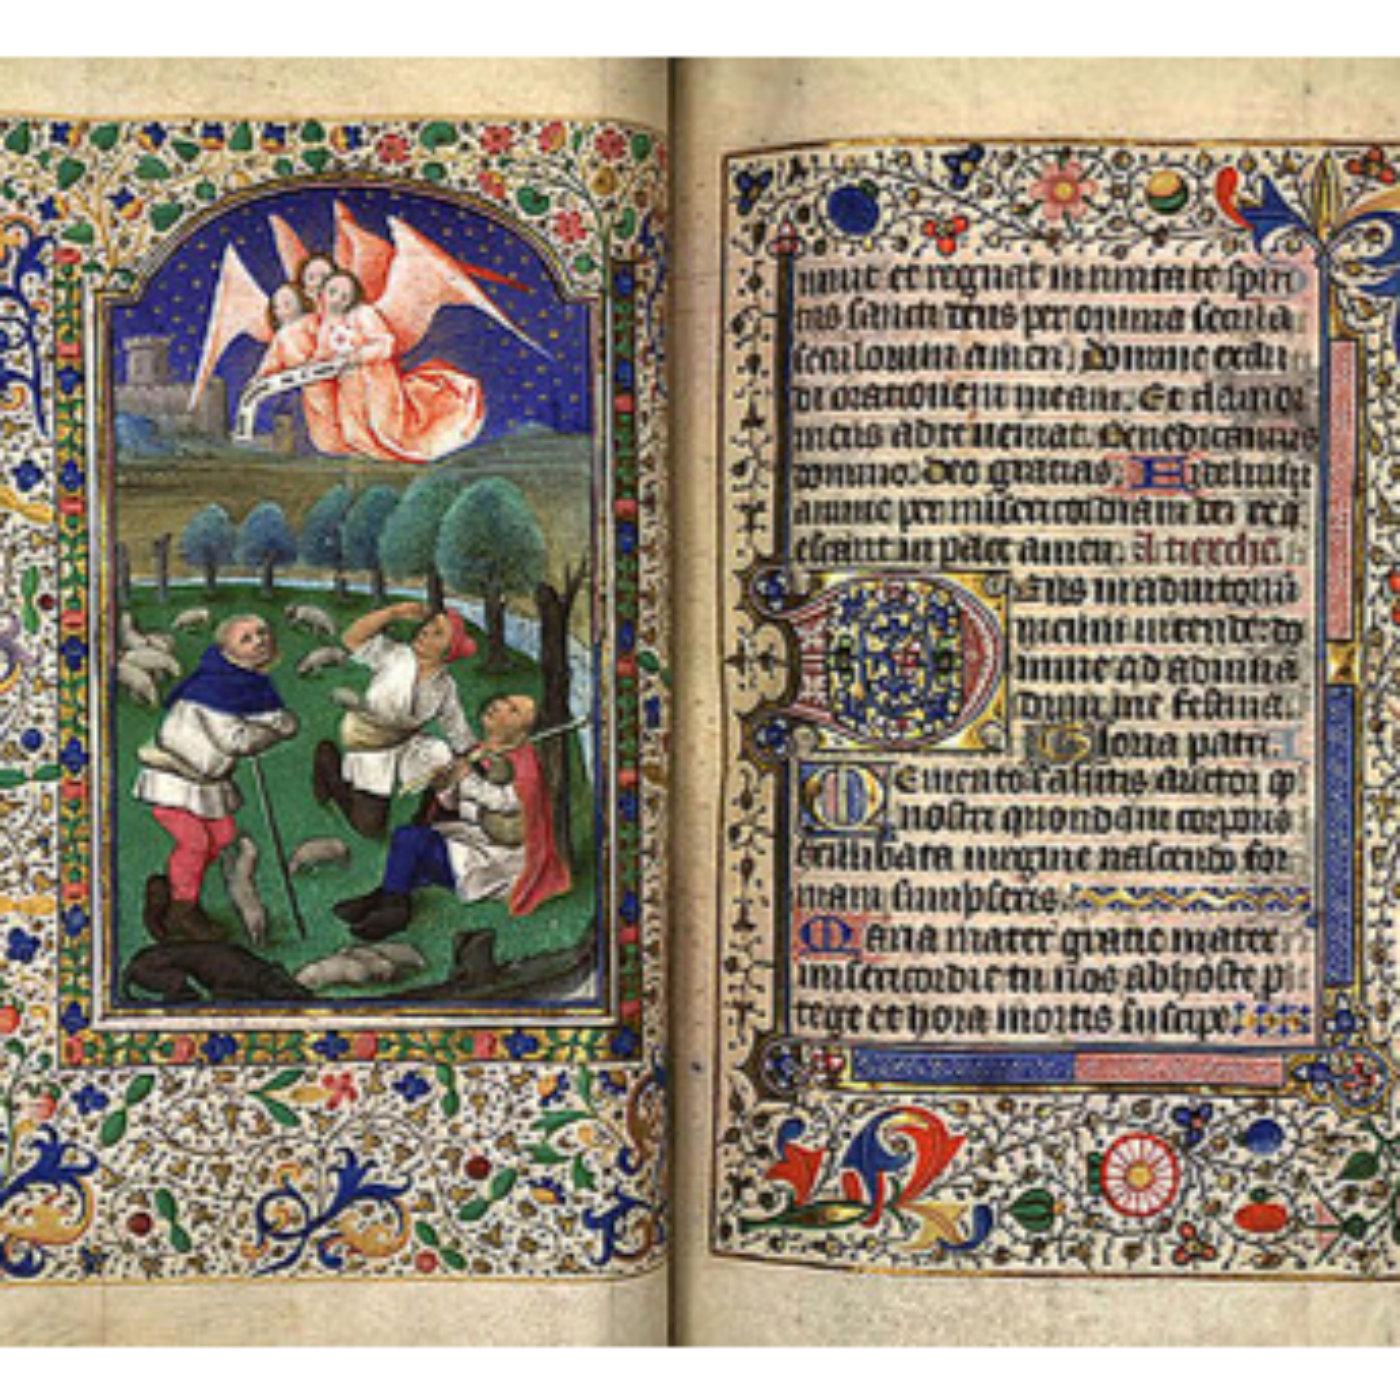 uiuit et regnat in unitate spiri
tus sancti deus per omnia secula
seculorum amen. Domine exau
di orationem meam. Et clamor
meus ad te ueniat. Benedicamus
domino. Deo gracias. Fidelium
anime per misericordiam dei req
escant in pace amen. A tierche
Deus in adiutoriu
meum intende. do
mine ad adiuua
dum me festina.
Gloria patri.
Memento salutis auctor q
nostri quondam corporis
ex illibata uirgine nascendo for
mam sumpseris.
Maria mater gratie mater
misericordie tu nos ab hoste p
tege et hora mortis suscipe.